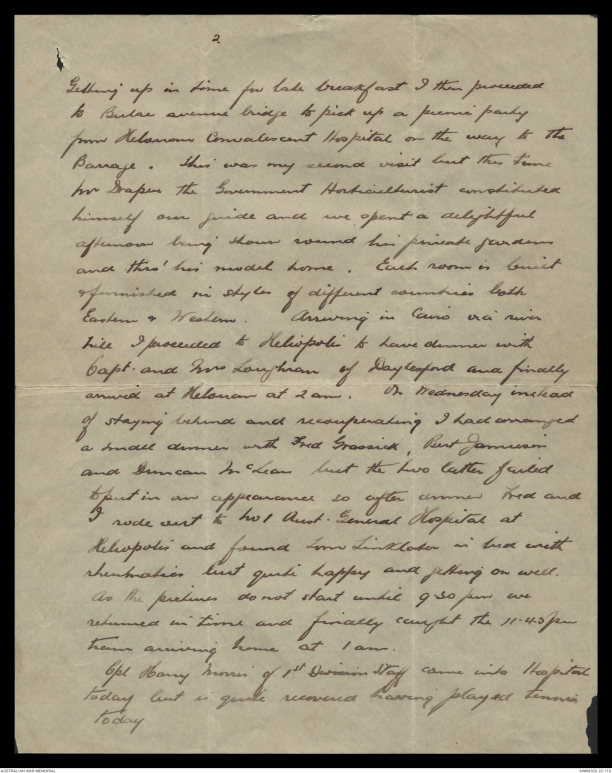 2
Getting up in time for late breakfast I then proceeded
to Bulac avenue bridge to pick up a picnic party
from Helouan Convalescent Hospital on the way to the
Barrage. This was my second visit but this time
Mr Draper the Government Horticulturist constituted
himself our guide and we spent a delightful
afternoon being shown round his private gardens
and thro' his model home. Each room is built
& furnished in styles of different countries both
Eastern & Western. Arriving in Cairo via river
I proceeded to Heliopolis to have dinner with
Capt. and Mrs Loughran of Daylesford and finally
arrived at Helouan at 2 am. On Wednesday instead
of staying behind and recouperating I had arranged
a small dinner with Fred Grassick, Bert Jamieson
and Duncan McLean but the two latter failed
to put in an appearance so after dinner Fred and
I rode out to No 1 Aust. General Hospital at
Heliopolis and found Tom Linklater in bed with
rheumatics but quite happy and getting on well.
As the pictures do not start until 9.30 pm we
returned in time and finally caught the 11.45 pm
train arriving home at 1 am.
Cpl Harry Morris of 1st Division Staff came into Hospital
today but is quite recovered having played tennis
today
AUSTRALIAN WAR MEMORIAL